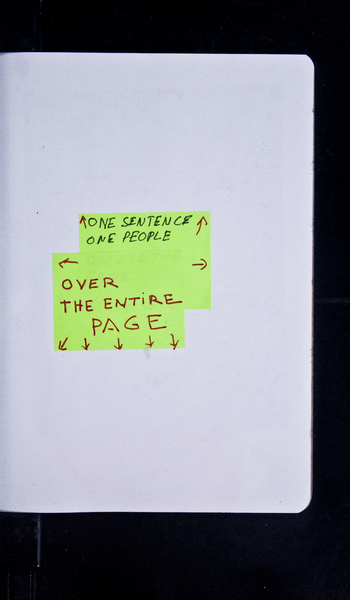 ONE SENTENCE
ONE PEOPLE
OVER
THE ENTIRE
PAGE